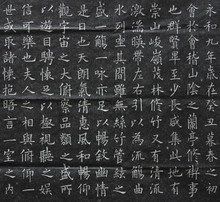 永和九年歲在癸丑暮春之初
會於會稽山陰之蘭亭修禊事
也群賢畢至少長咸集此地有
崇山峻嶺茂林修竹又有清流
激湍映帶左右引以為流觴曲
水列坐其間雖無絲竹管弦之
盛一觴一詠亦足以暢敘幽情
是日也天朗氣清惠風和暢仰
觀宇宙之大俯察品類之盛所
以遊目騁懷足以極視聽之娛
信可樂也夫人之相與俯仰一
世或取諸懷抱晤言一室之內